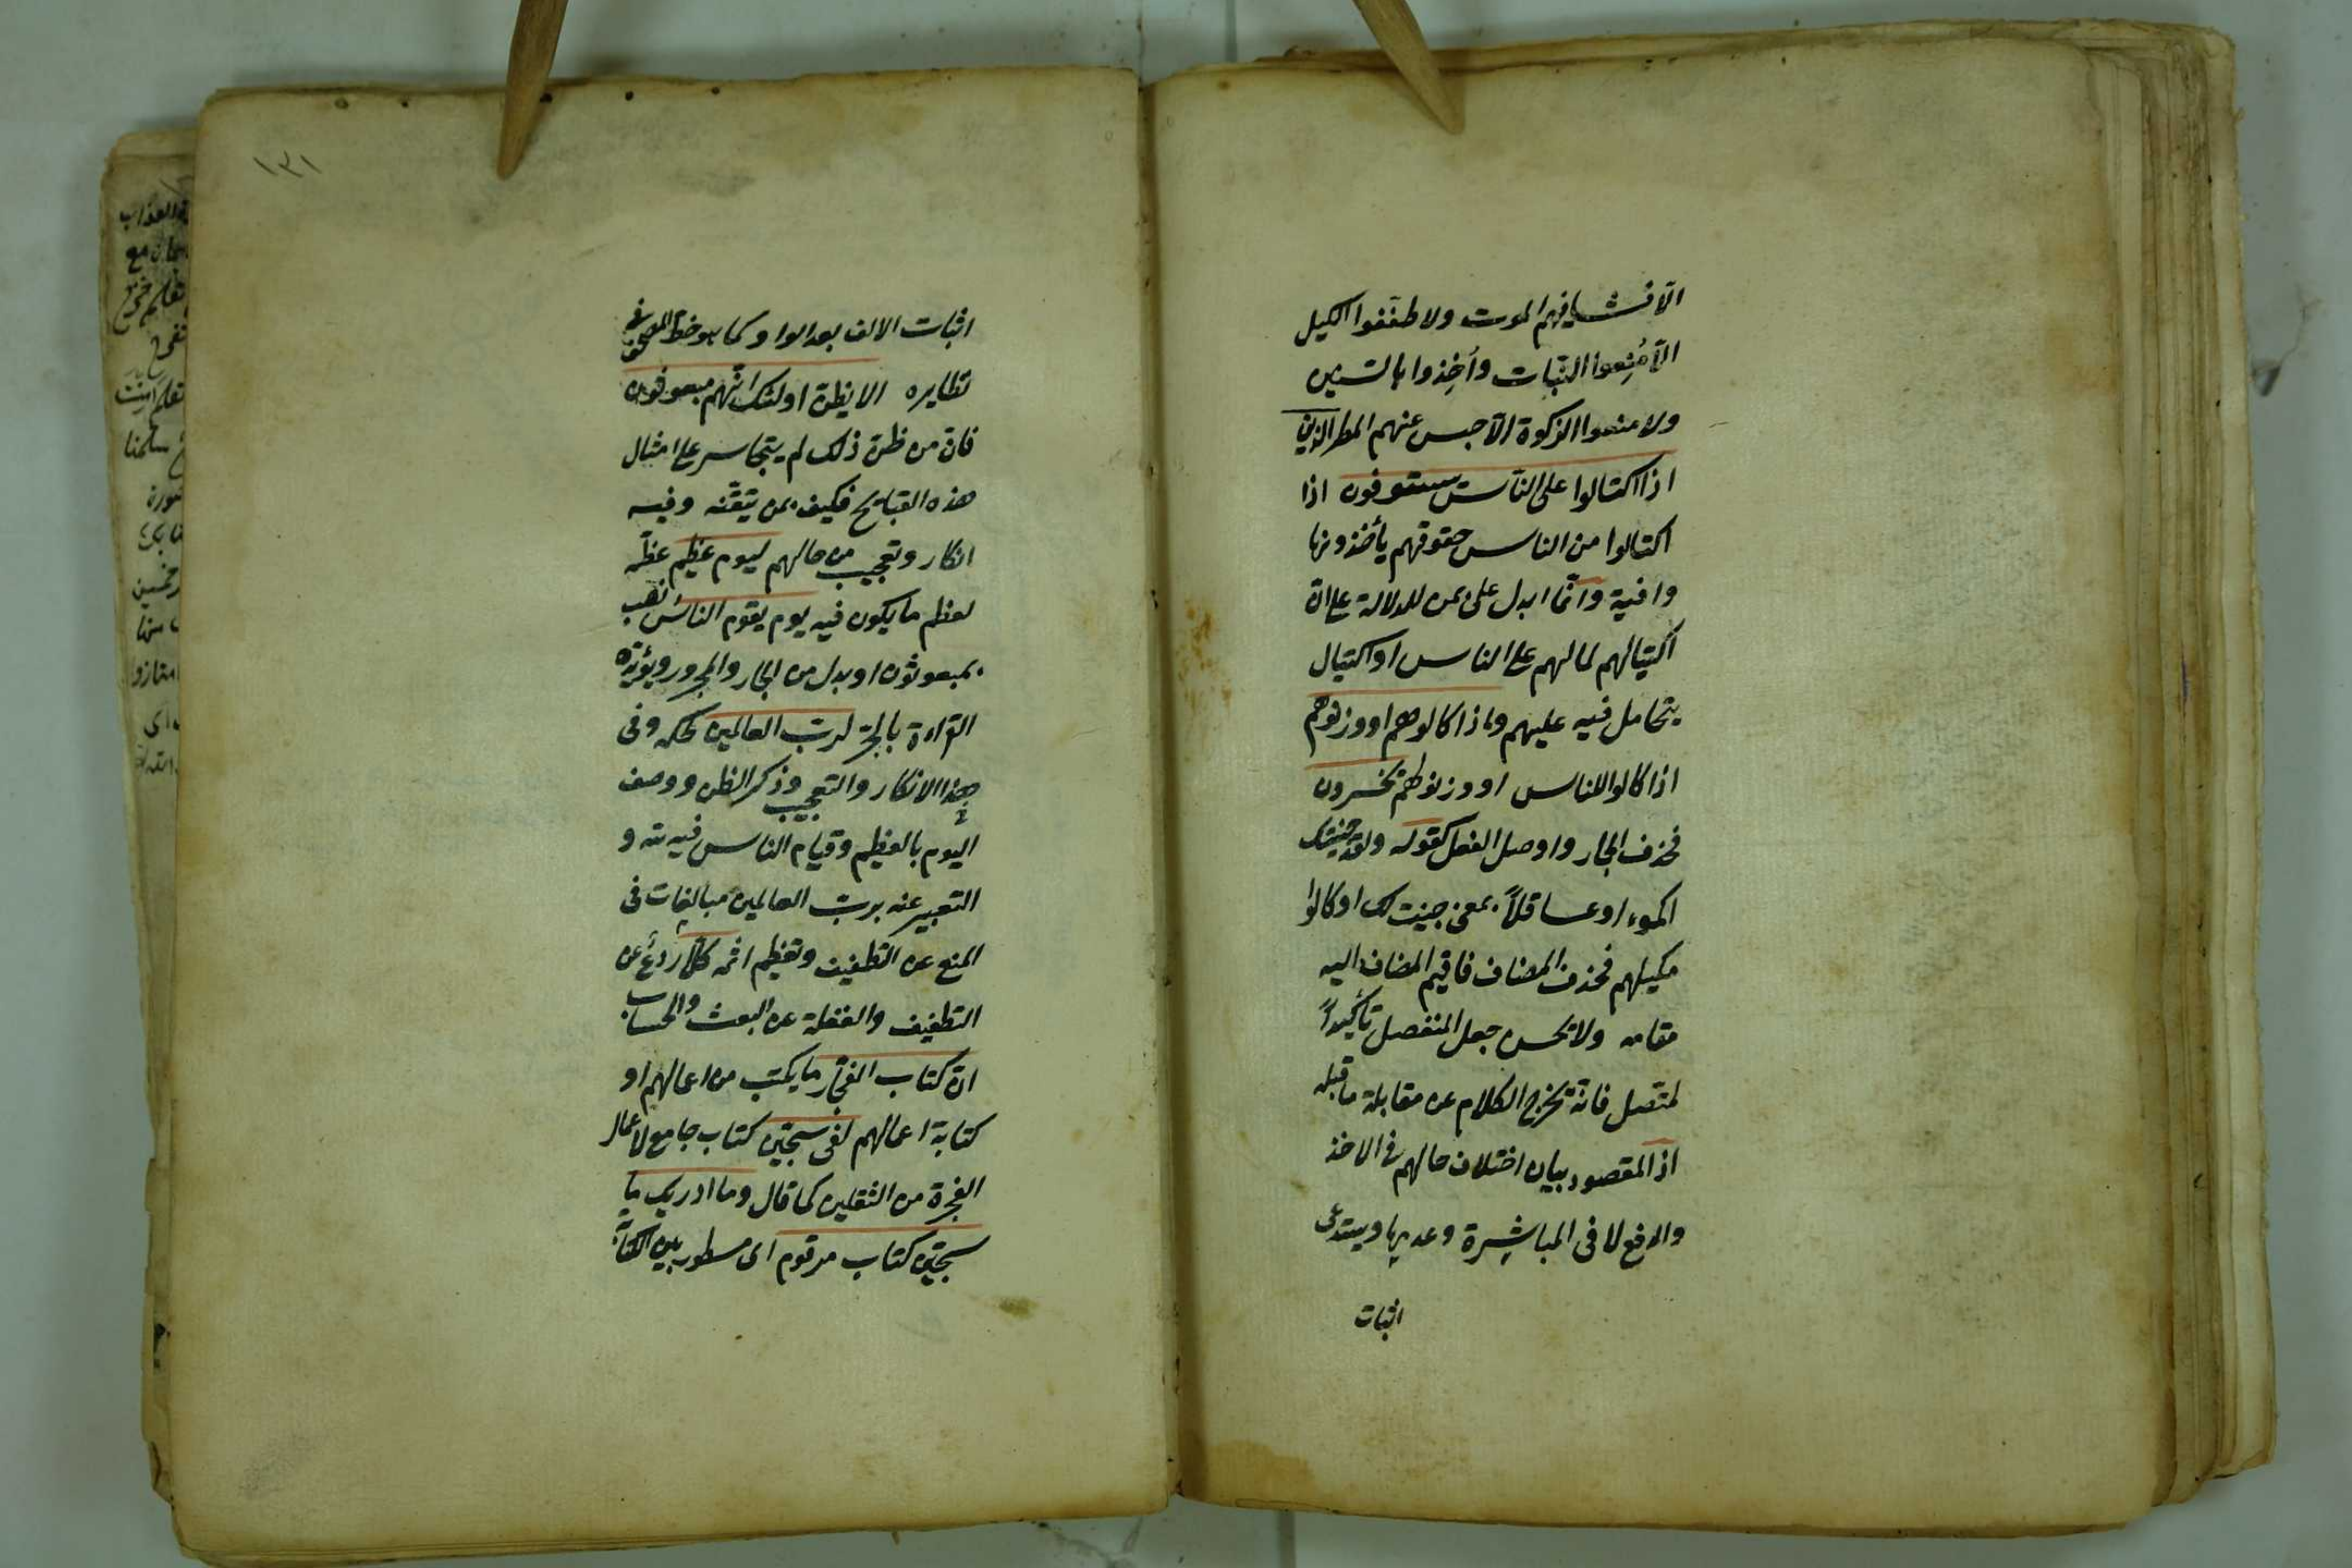 الّا فشا فيهم الموت ولا طفّفوا الكيل
الّا مُنِعوا النّبات وأخِذوا بالسّنين
ولا منعوا الزكوة الّا حبس عنهم المطر الذين
اذا اكتالوا على النّاس يستوفون اذا
اكتالوا من الناس حقوقهم يأخذونها
وافية وانّما ابدل على بمن للدلالة على انّ
اكتيالهم لمالهم على الناس او اكتيال
يتحامل فيه عليهم واذا كالوهم او وزنوهم
اذا كالوا للناس او وزنوا لهم يخسرون
فحذف الجار واوصل الفعل كقوله ولقد جنيتك
اكموءا وعساقلاً بمعنى جنيت لك او كالوا
مكيلهم فحذف المضاف فاقيم المضاف اليه
مقامه ولا يحسن جعل المنفصل تأكيداً
لمتصل فانّه يخرج الكلام عن مقابلة ما قبله
اذ المقصود بيان اختلاف حالهم فى الاخذ
والدفع لا فى المباشرة وعدمها ويستدعى
اثبات
١٣١
اثبات الالف بعد الواو كما هو خطّ المصحف فى
نظايره الا يظنّ اولئك انّهم مبعوثون
فانّ من ظنّ ذلك لم يتجاسر على امثال
هذه القبايح فكيف بمن تيقّنه وفيه
انكار وتعجيب من حالهم ليوم عظيم عظّمه
لعظم ما يكون فيه يوم يقوم الناس نصب
بمبعوثون او بدل من الجار والمجرور ويؤيّده
القراءة بالجرّ لربّ العالمين لحكمه وفى
هذا الانكار والتعجيب وذكر الظن ووصف
اليوم بالعظيم وقيام الناس فيه لله و
التعبير عنه بربّ العالمين مبالغات فى
المنع عن التطفيف وتعظيم اثمه كلّا ردع عن
التطفيف والغفلة عن البعث والحساب
انّ كتاب الفجّار ما يكتب من اعمالهم او
كتابة اعمالهم لفى سجّين كتاب جامع لاعمال
الفجرة من الثقلين كما قال وما ادريك ما
سجّين كتاب مرقوم اى مسطور بيّن الكتابة